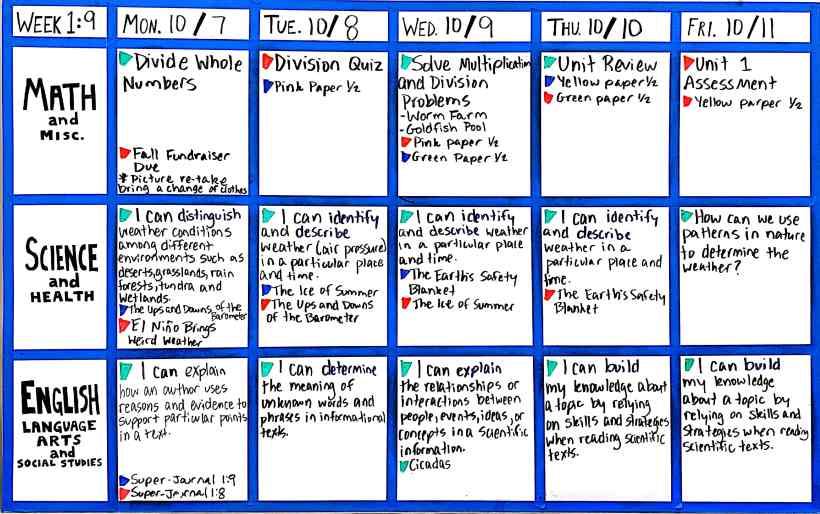 WEEK 1:9
MON. 10/7
TUE. 10/8
WED. 10/9
THU. 10/10
FRI. 10/11
MATH
and
MISC.
Divide Whole
Numbers
Fall Fundraiser
Due
* Picture re-take
bring a change of clothes
Division Quiz
Pink Paper 1/2
Solve Multiplication
and Division
Problems
-Worm Farm
-Goldfish Pool
Pink paper 1/2
Green Paper 1/2
Unit Review
Yellow paper 1/2
Green paper 1/2
Unit 1
Assessment
Yellow parper 1/2
SCIENCE
and
HEALTH
I can distinguish
weather conditions
among different
environments such as
deserts, grasslands, rain
forests, tundra and
wetlands.
The Ups and Downs of the
Barometer
El Niño Brings
Weird Weather
I can identify
and describe
weather (air pressure)
in a particular place
and time.
The Ice of Summer
The Ups and Downs
of the Barometer
I can identify
and describe weather
in a particular place
and time.
The Earth's Safety
Blanket
The Ice of Summer
I can identify
and describe
weather in a
particular place and
time.
The Earth's Safety
Blanket
How can we use
patterns in nature
to determine the
weather?
ENGLISH
LANGUAGE
ARTS
and
SOCIAL STUDIES
I can explain
how an author uses
reasons and evidence to
support particular points
in a text.
Super-Journal 1:9
Super-Journal 1:8
I can determine
the meaning of
unknown words and
phrases in informational
texts.
I can explain
the relationships or
interactions between
people, events, ideas, or
concepts in a scientific
information.
Cicadas
I can build
my knowledge about
a topic by relying
on skills and strategies
when reading scientific
texts.
I can build
my knowledge
about a topic by
relying on skills and
strategies when reading
scientific texts.